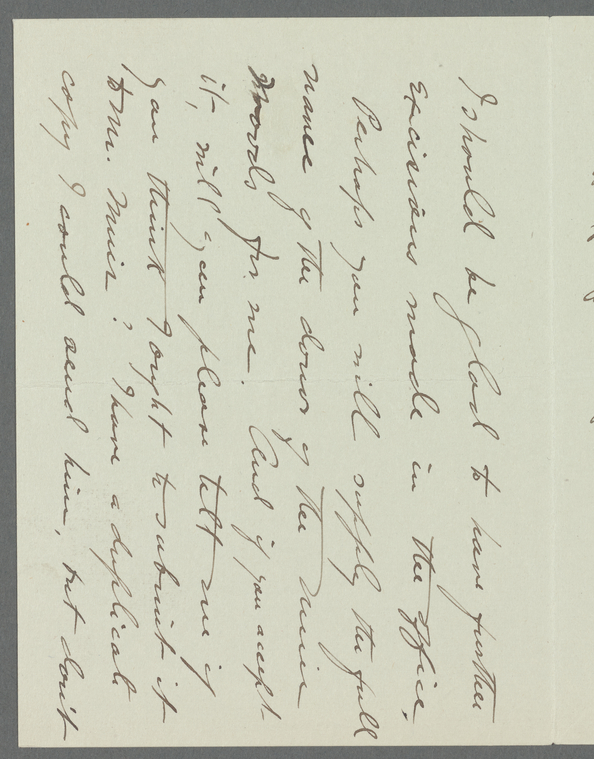 I should be glad to have further
excisions made in the office.
Perhaps you will supply the full
name of the donor of the Muir
Woods for me. And if you accept
it, will you please tell me if
you think I ought to submit it
to Mr. Muir? I have a duplicate
copy I could send him, but don't